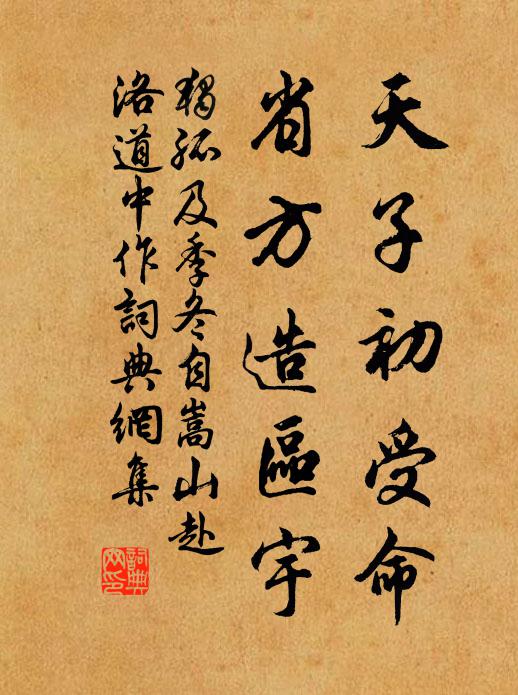 天子初受命
省方造區宇
獨孤及季冬自嵩山赴
洛道中作詞典網集
詞典網印